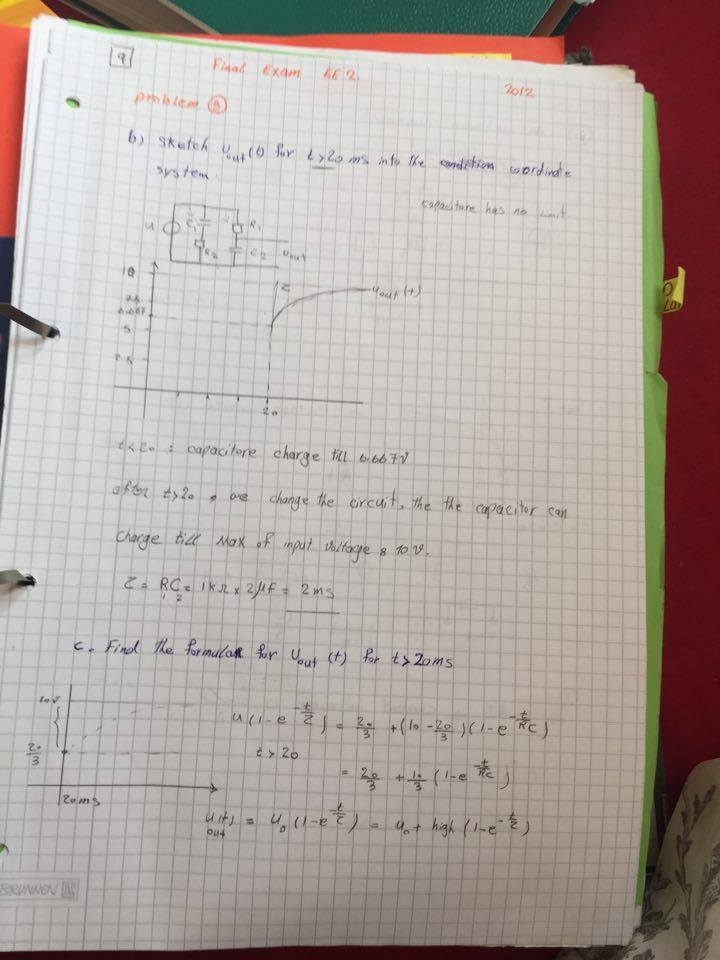 9
Final Exam EE 2.
2012
problem A
b) sketch Uout(t) for t>20 ms into the coordinate
system.
capacitore has no limit
U
C1
R1
R2
C2
Uout
10
7.5
6.667
5
2.5
τ
Uout(t)
20
t<20 : capacitore charge till 6.667V
after t>20 , we change the circuit, the the capacitor can
charge till Max of input voltage 10V.
τ = RC = 1kΩ x 2µF = 2ms
1 2
c. Find the formula for Uout (t) for t>20ms
10V
20/3
20ms
u(1-e^-t/τ) = 20/3 + (10 - 20/3)(1-e^-t/RC)
t > 20
= 20/3 + 10/3 (1-e^-t/RC)
U(t)out = U0 (1-e^-t/τ) = U0 + high (1-e^-t/τ)
BRUNNEN